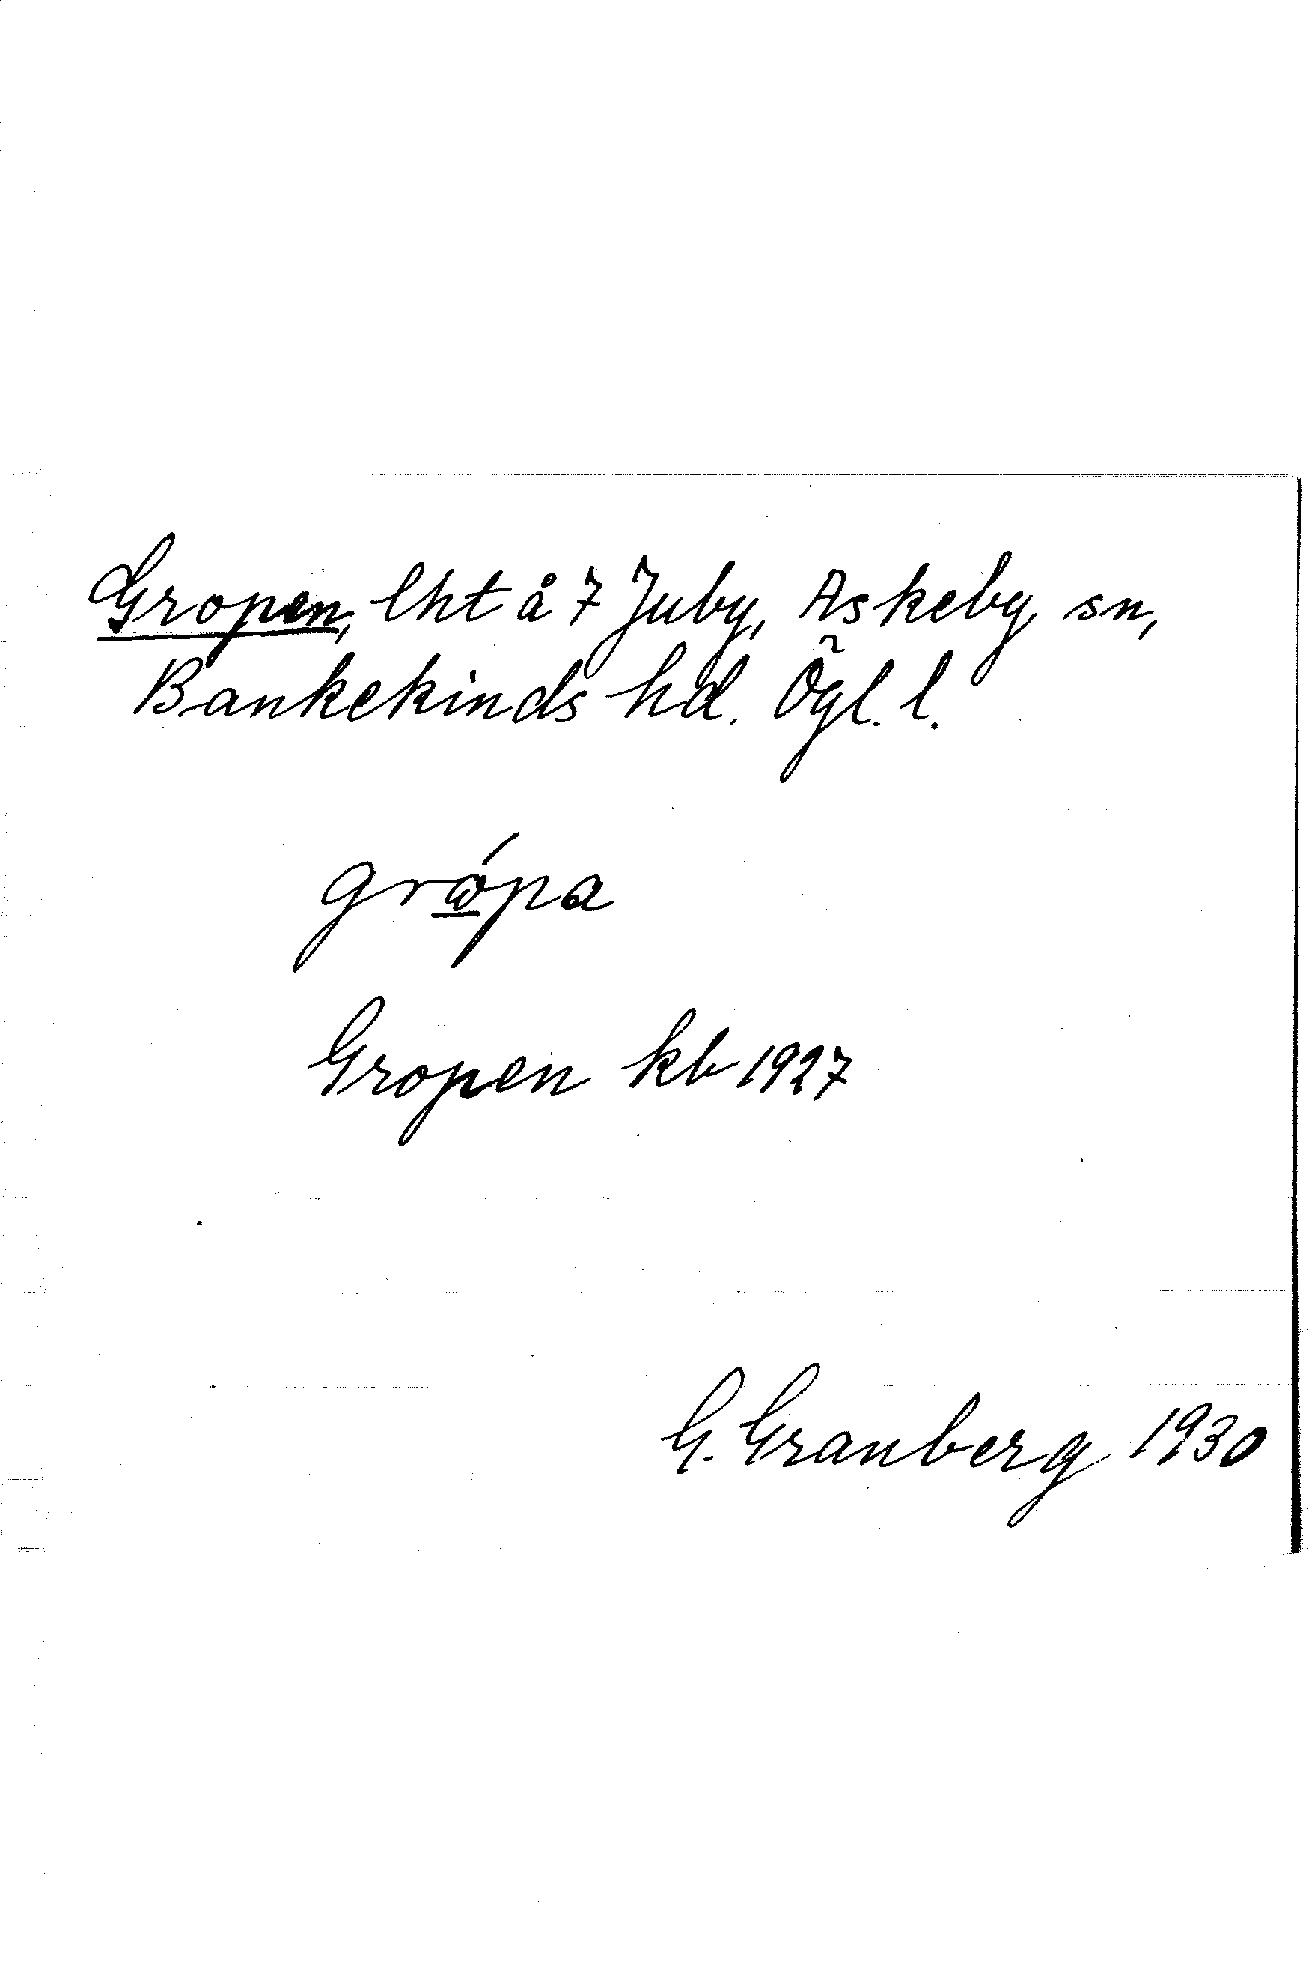 Gropen, lht å 7 Juby, Askeby sn,
Bankekinds hd. Ögl. l.
grópa
Gropen kb 1927
G. Granberg 1930